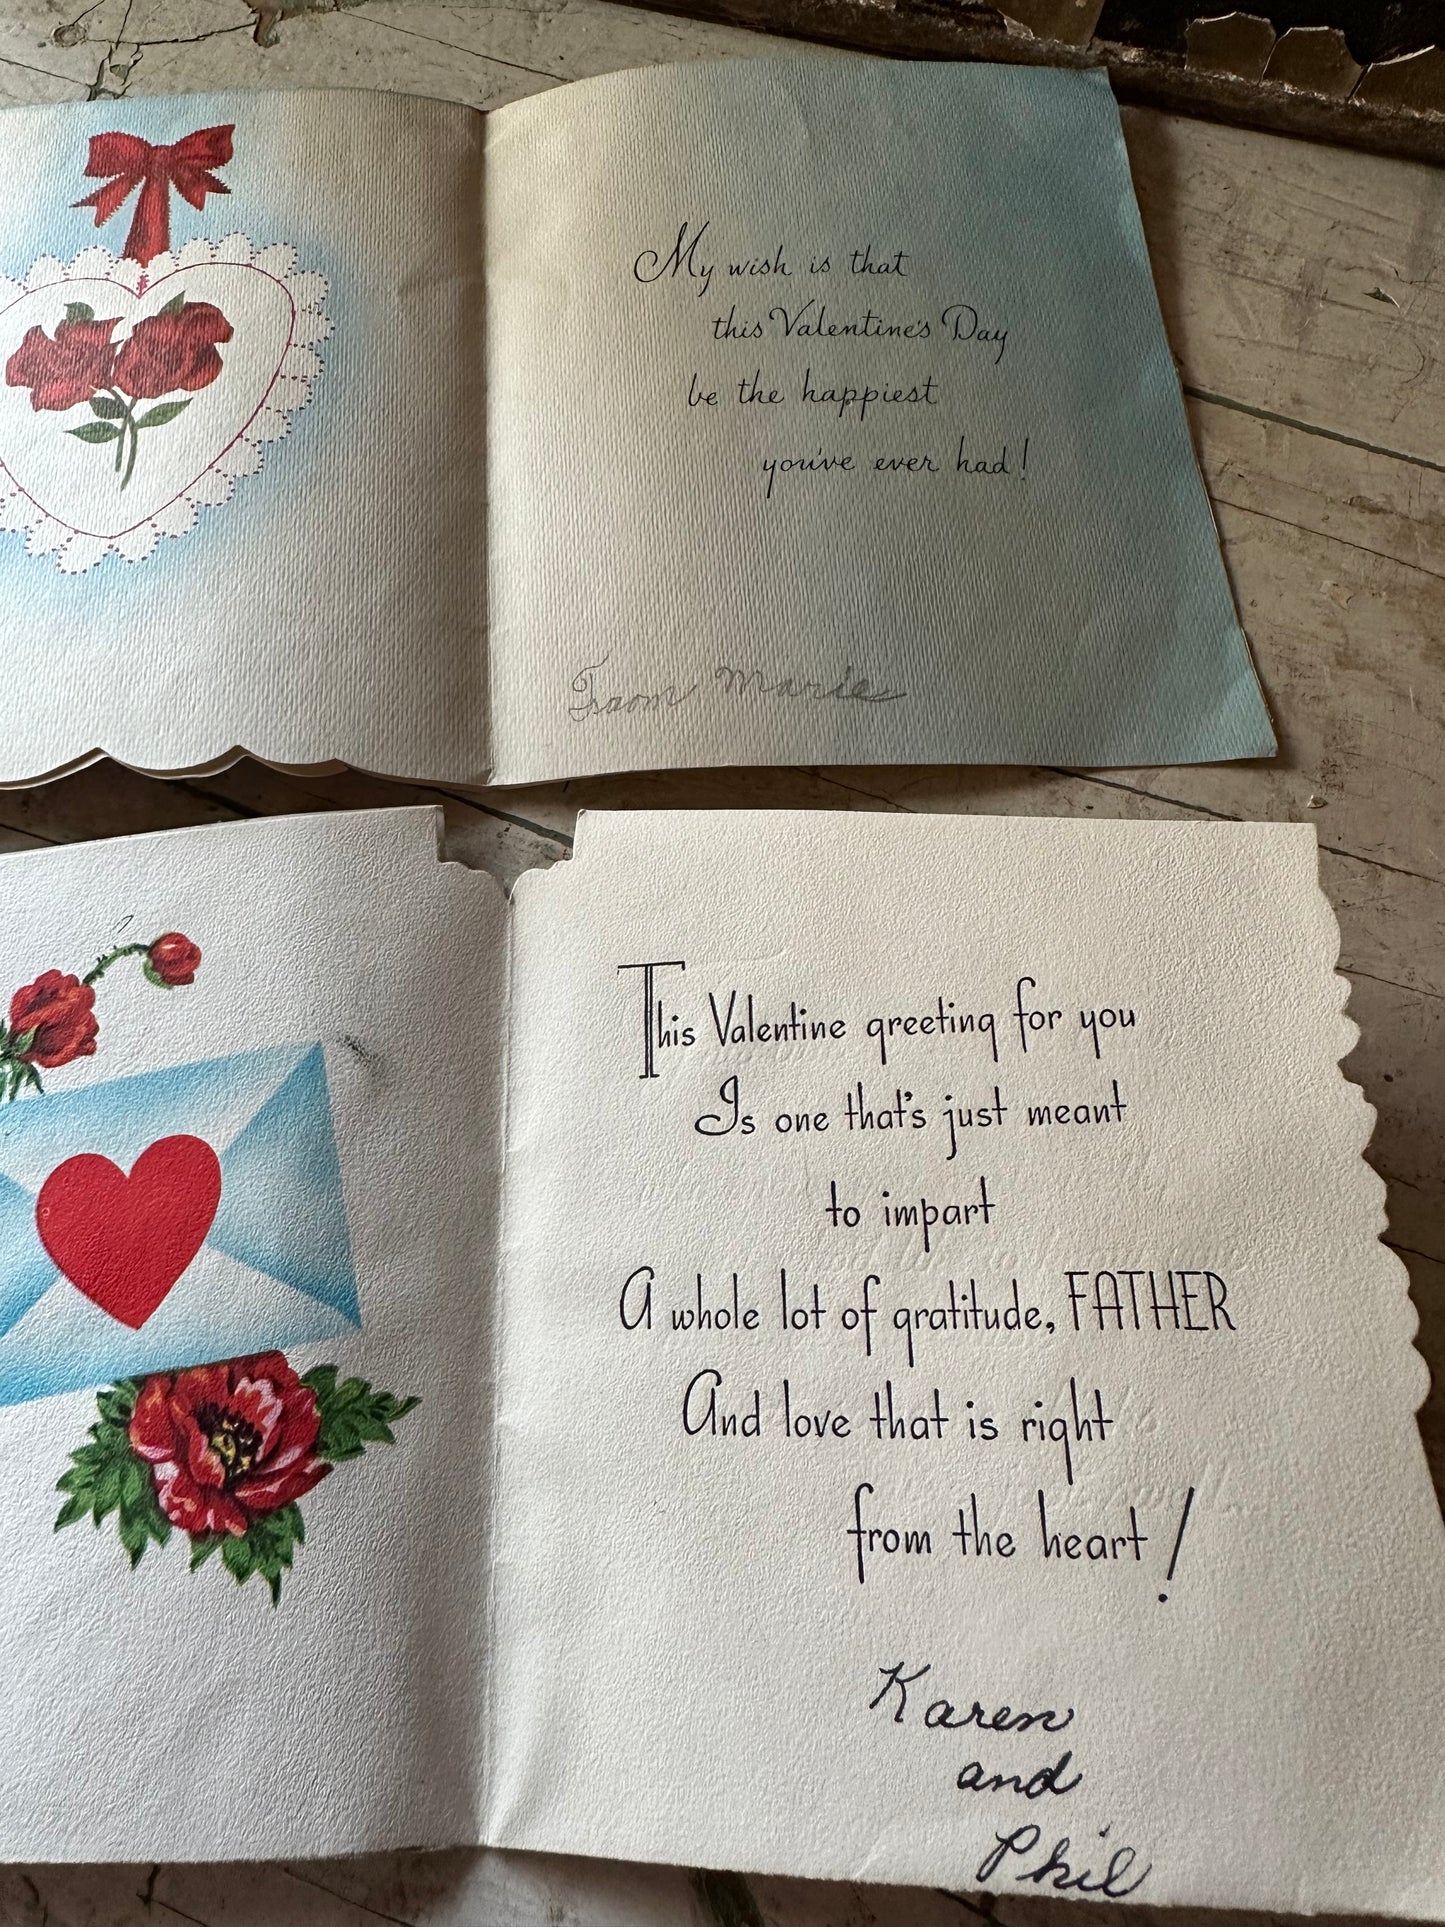 My wish is that
this Valentine's Day
be the happiest
you've ever had!
From Marie
This Valentine greeting for you
Is one that's just meant
to impart
A whole lot of gratitude, FATHER
And love that is right
from the heart!
Karen
and
Phil